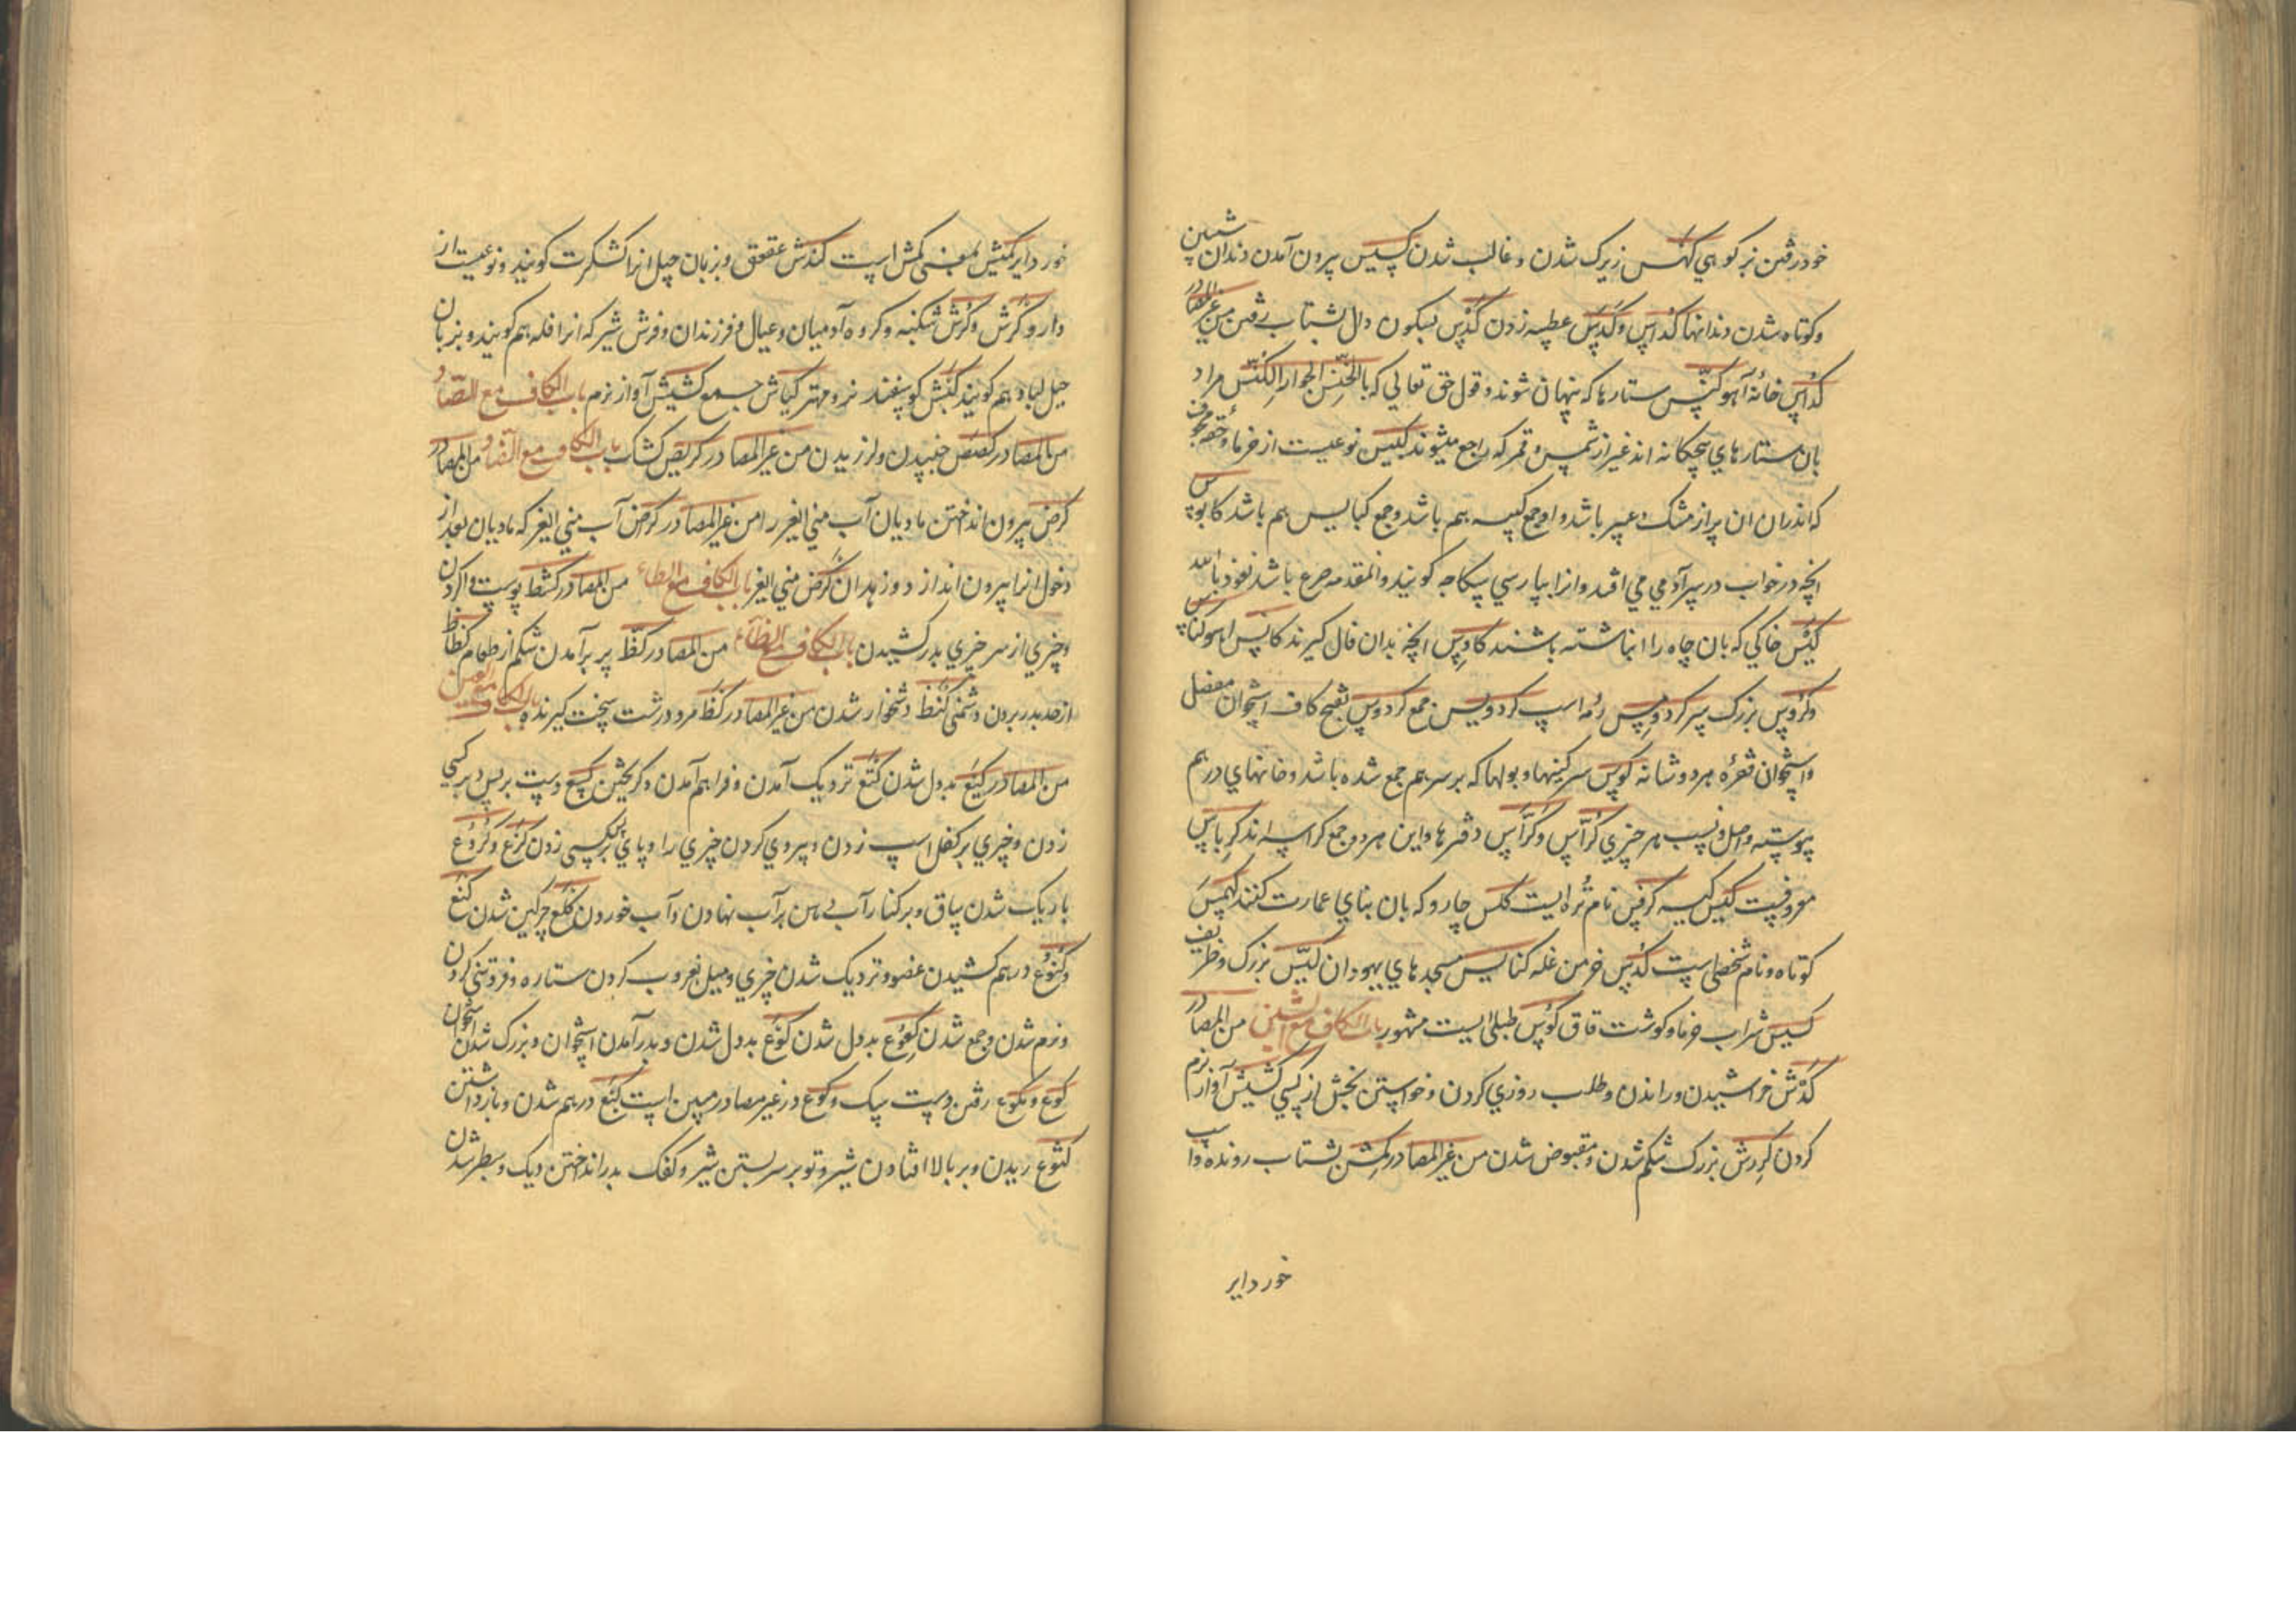 خود رفتن بز کوهي کَیْس زیرک شدن و غالب شدن کسیس بیرون آمدن دندان پیشین
و کوتاه شدن دندانها کُداس و کَدس عطسه زدن کَدْس بسکون دال بشتاب رفتن من غیر المصادر
کناس خانۀ آهو کنّس ستارها که پنهان شوند و قول حق تعالي که بالخنّس الجوار الکنّس مراد
بان ستارهاي پنجکانه اند غیر از شمس و قمر که راجع میشوند کبیس نوعیست از خرما و حقه مجوف
که اندران ان پر از مشک و عبیر باشد و او جمع کیسه هم باشد و جمع کبایس هم باشد کابوس
انچه در خواب در سر آدمي مي افتد و انرا بپارسي سکاجه کویند و المقدمه صرع باشد نعوذ بالله
کبْس خاکي که بان چاه را انباشته باشند کادس انچه بدان فال کیرند کانس اهو کناس
و کروس بزرک سر کردوس رمه اسپ کرادیس جمع کردوس بفتح کاف استخوان مفصل
و استخوان فقره هر دو شانه کرس سرکینها و بولها که بر سر هم جمع شده باشد و خانهاي در هم
پیوسته و اصل و نسب هر چیزي کُرّاس و کَرّاس دفترها و این هر دو جمع کراسه اند کرباس
معروفست کیس کیسه کرفس نام تره ایست کلس چارو که بان بناي عمارت کنند کهمس
کوتاه و نام شخصی است کُدس خرمن غله کنایس مسجدهاي یهودان کیّس بزرک و ظریف
کسیس شراب خرما و کوشت قاق کوس طبلی ایست مشهور باب الکاف مع الشین من المصادر
کَدْش خراشیدن و راندن و طلب روزي کردن و خواستن بخشش از کسي کشیش آواز نرم
کردن کرش بزرک شکم شدن و مقبوض شدن من غیر المصادر کمش بشتاب رونده و اسپ
خورد ایر
خورد ایر کمیش بمعنی کمش است کندش عقعق و بزبان جیل انرا کشکرت کویند و نوعیست از
دارو کرِش و کِرْش شکنبه و کروه آدمیان و عیال و فرزندان و فرش شیر که انرا فله هم کویند و بزبان
جیل لباد هم کویند کبْش کوسفند نر و مهتر کباش جمع کشیش آواز نرم باب الکاف مع الصاد
من المصادر کصص جنبیدن و لرزیدن من غیر المصادر کریص کشک باب الکاف مع الضاد من المصادر
کرض بیرون انداختن مادیان آب مني ایغر را من غیر المصادر کرض آب مني ایغر که مادیان بعد از
دخول انرا بیرون انداز د و زهدان کرض مني ایغر باب الکاف مع الطاء من المصادر کشط پوست واکردن
و چیزي از سر چیزي بدر کشیدن باب الکاف مع الظاء من المصادر کظّ پر بر آمدن شکم از طعام کظاظ
از حد بدر بردن دشمني کنظ دشخوار شدن من غیر المصادر کظ مرد درشت سخت کیرنده باب الکاف مع العین
من المصادر کیع بد دل شدن کتع نزدیک آمدن و فراهم آمدن و کریختن کسع دست بر پس و بر کسي
زدن و چیزي بر کفل اسپ زدن و پیروي کردن چیزي را و پاي بر کسي زدن کرَع و کروع
باریک شدن ساق و بر کنار آب دهن بر آب نهادن و آب خوردن کلع چرکین شدن کنع
و کنوع درهم کشیدن عضو و نزدیک شدن چیزي و میل بغروب کردن ستاره و فروتني کردن
و نرم شدن و جمع شدن کعوع بد دل شدن کوع بد دل شدن و بدر آمدن استخوان و بزرک شدن استخوان
کوع و کوع رفتن دست سک و کوع در غیر مصادر مبین است کبع درهم شدن و بازداشتن
کثوع ریدن و بر بالا افتادن شیر و توبر سر بستن شیر و کفک بدر انداختن دیک و سطبر شدن